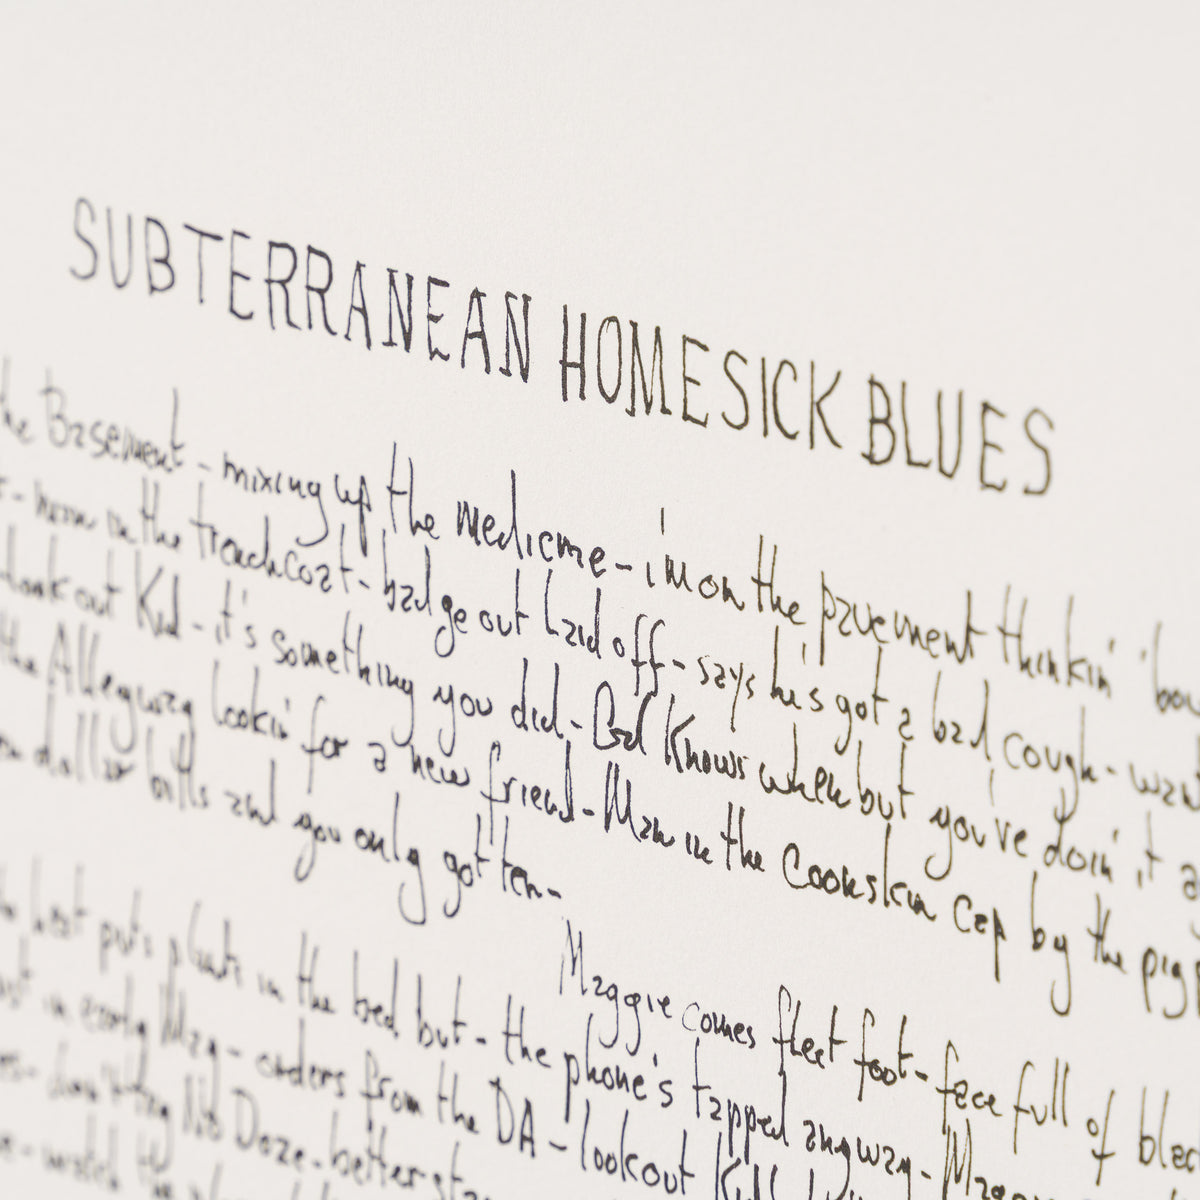 SUBTERRANEAN HOMESICK BLUES
the Basement - mixing up the medicine - i'm on the pavement thinkin' 'bou
in the trenchcoat - badge out laid off - says he's got a bad cough - want
look out Kid - it's something you did - God Knows when but you've doin' it a
the Alleyway lookin' for a new friend - Man in the Coonskin cap by the pig
dollar bills and you only got ten -
Maggie comes fleet foot - face full of blac
heat puts plants in the bed but - the phone's tapped anyway - Magg
in early May - orders from the DA - lookout Kid
don't try No Doze - better sta
watch the